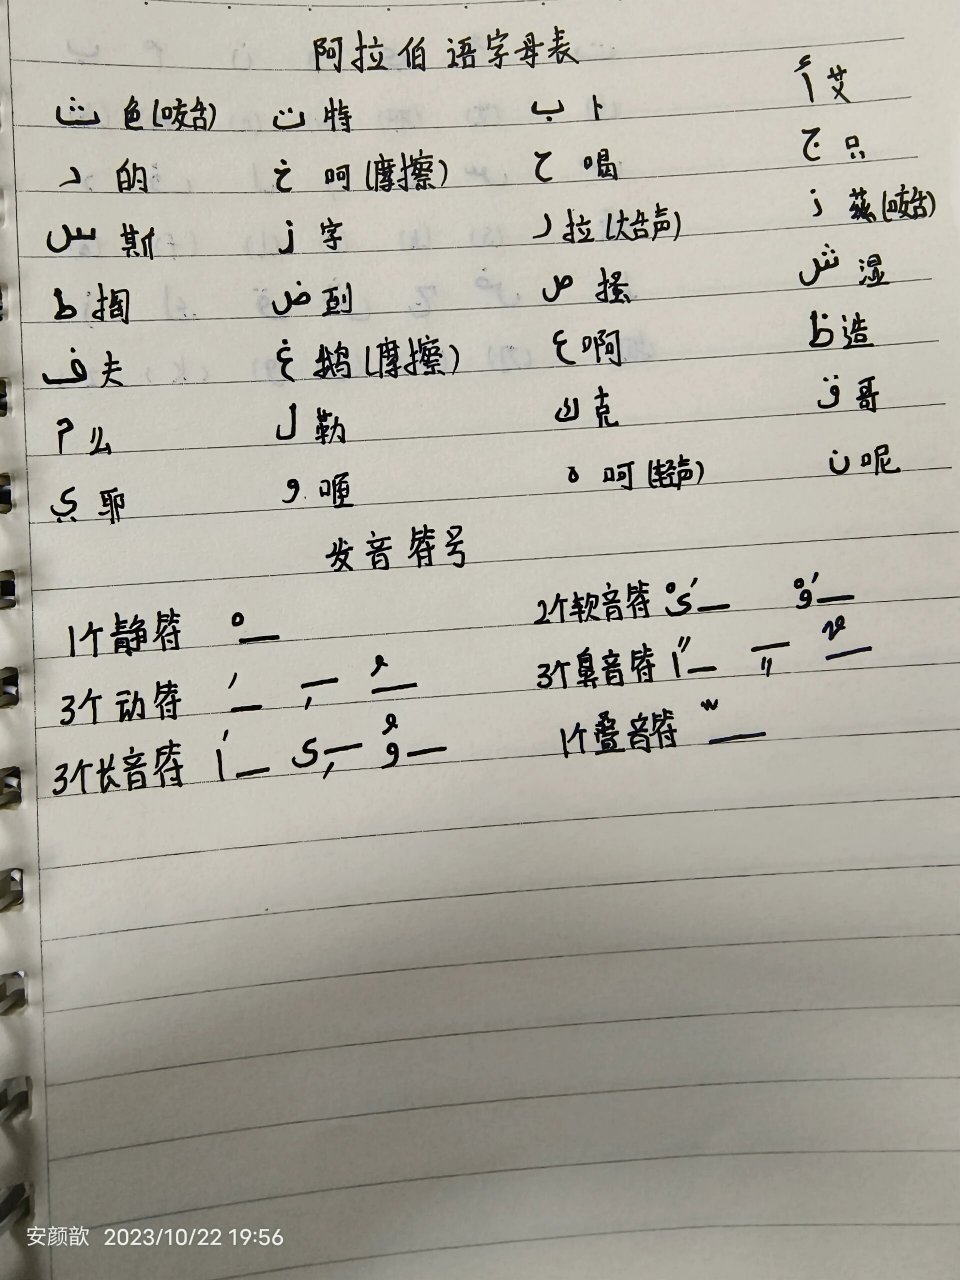 阿拉伯语字母表
ث 色(咬舌) ت 特 ب 卜 أ 艾
د 的 خ 呵(摩擦) ح 喝 ج 只
س 斯 ز 字 ر 拉(大舌声) ذ 兹(咬舌)
ط 搨 ض 到 ص 搔 ش 湿
ف 夫 غ 鹅(摩擦) ع 啊 ظ 造
م 么 ل 勒 ك 克 ق 哥
ي 耶 و 哑 ه 呵(轻声) ن 呢
发音符号
1个静符 2个软音符
3个动符 3个鼻音符
3个长音符 1个叠音符
安颜歆 2023/10/22 19:56